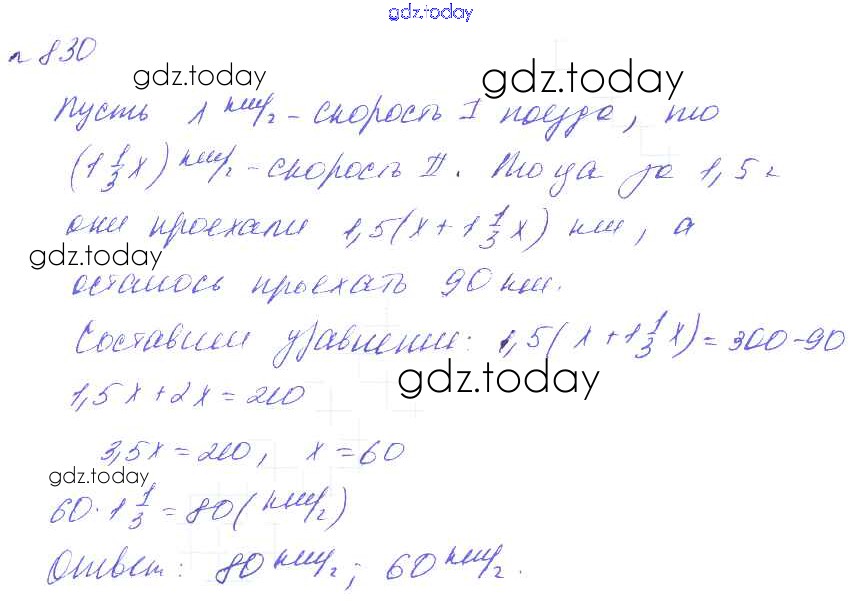 gdz.today
№ 830
gdz.today gdz.today
Пусть x км/ч - скорость I поезда, то
(1 1/3 x) км/ч - скорость II. Тогда за 1,5 ч
они проехали 1,5(x + 1 1/3 x) км, а
gdz.today
осталось проехать 90 км.
Составим уравнение: 1,5(x + 1 1/3 x) = 300 - 90
gdz.today
1,5x + 2x = 210
3,5x = 210, x = 60
gdz.today
60 · 1 1/3 = 80 (км/ч)
Ответ: 80 км/ч; 60 км/ч.